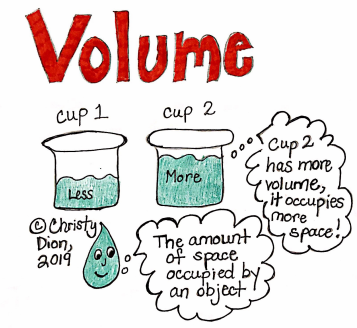 Volume
cup 1
cup 2
Less
More
Cup 2
has more
volume,
it occupies
more
space!
© Christy
Dion,
2019
The amount
of space
occupied by
an object